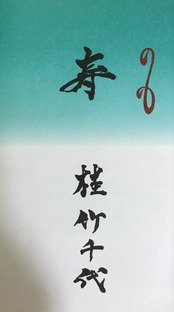 寿
桂竹千代